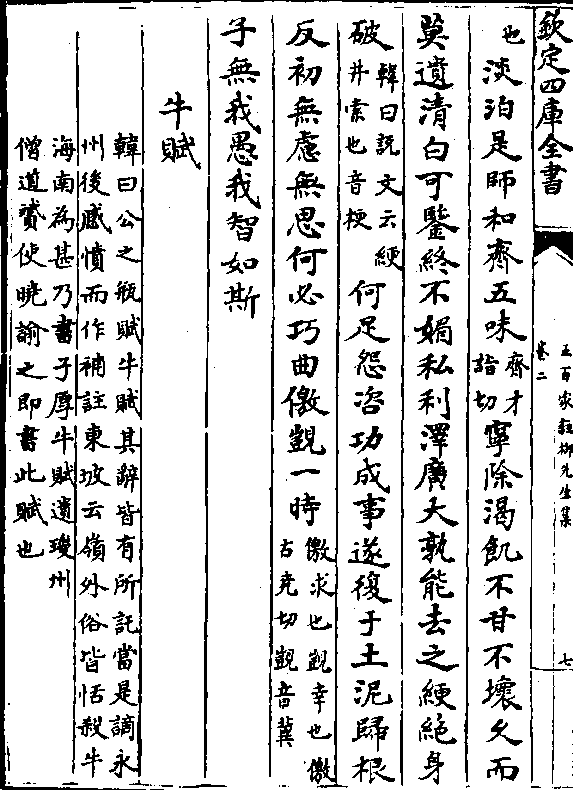 欽定四庫全書
五百家註柳先生集
卷二
七
也淡泊是師和齊五味齊才詣切寧除渴飢不甘不壞久而
莫遺清白可鑒終不媚私利澤廣大孰能去之綆絕身
破韓曰説文云綆井索也音梗何足怨咨功成事遂復于土泥歸根
反初無慮無思何必巧曲儌覬一時儌求也覬幸也儌古堯切覬音冀
子無我愚我智如斯
牛賦
韓曰公之瓶賦牛賦其辭皆有所託當是謫永
州後感憤而作補註東坡云嶺外俗皆恬殺牛
海南為甚乃書子厚牛賦遺瓊州
僧道贇使曉諭之即書此賦也